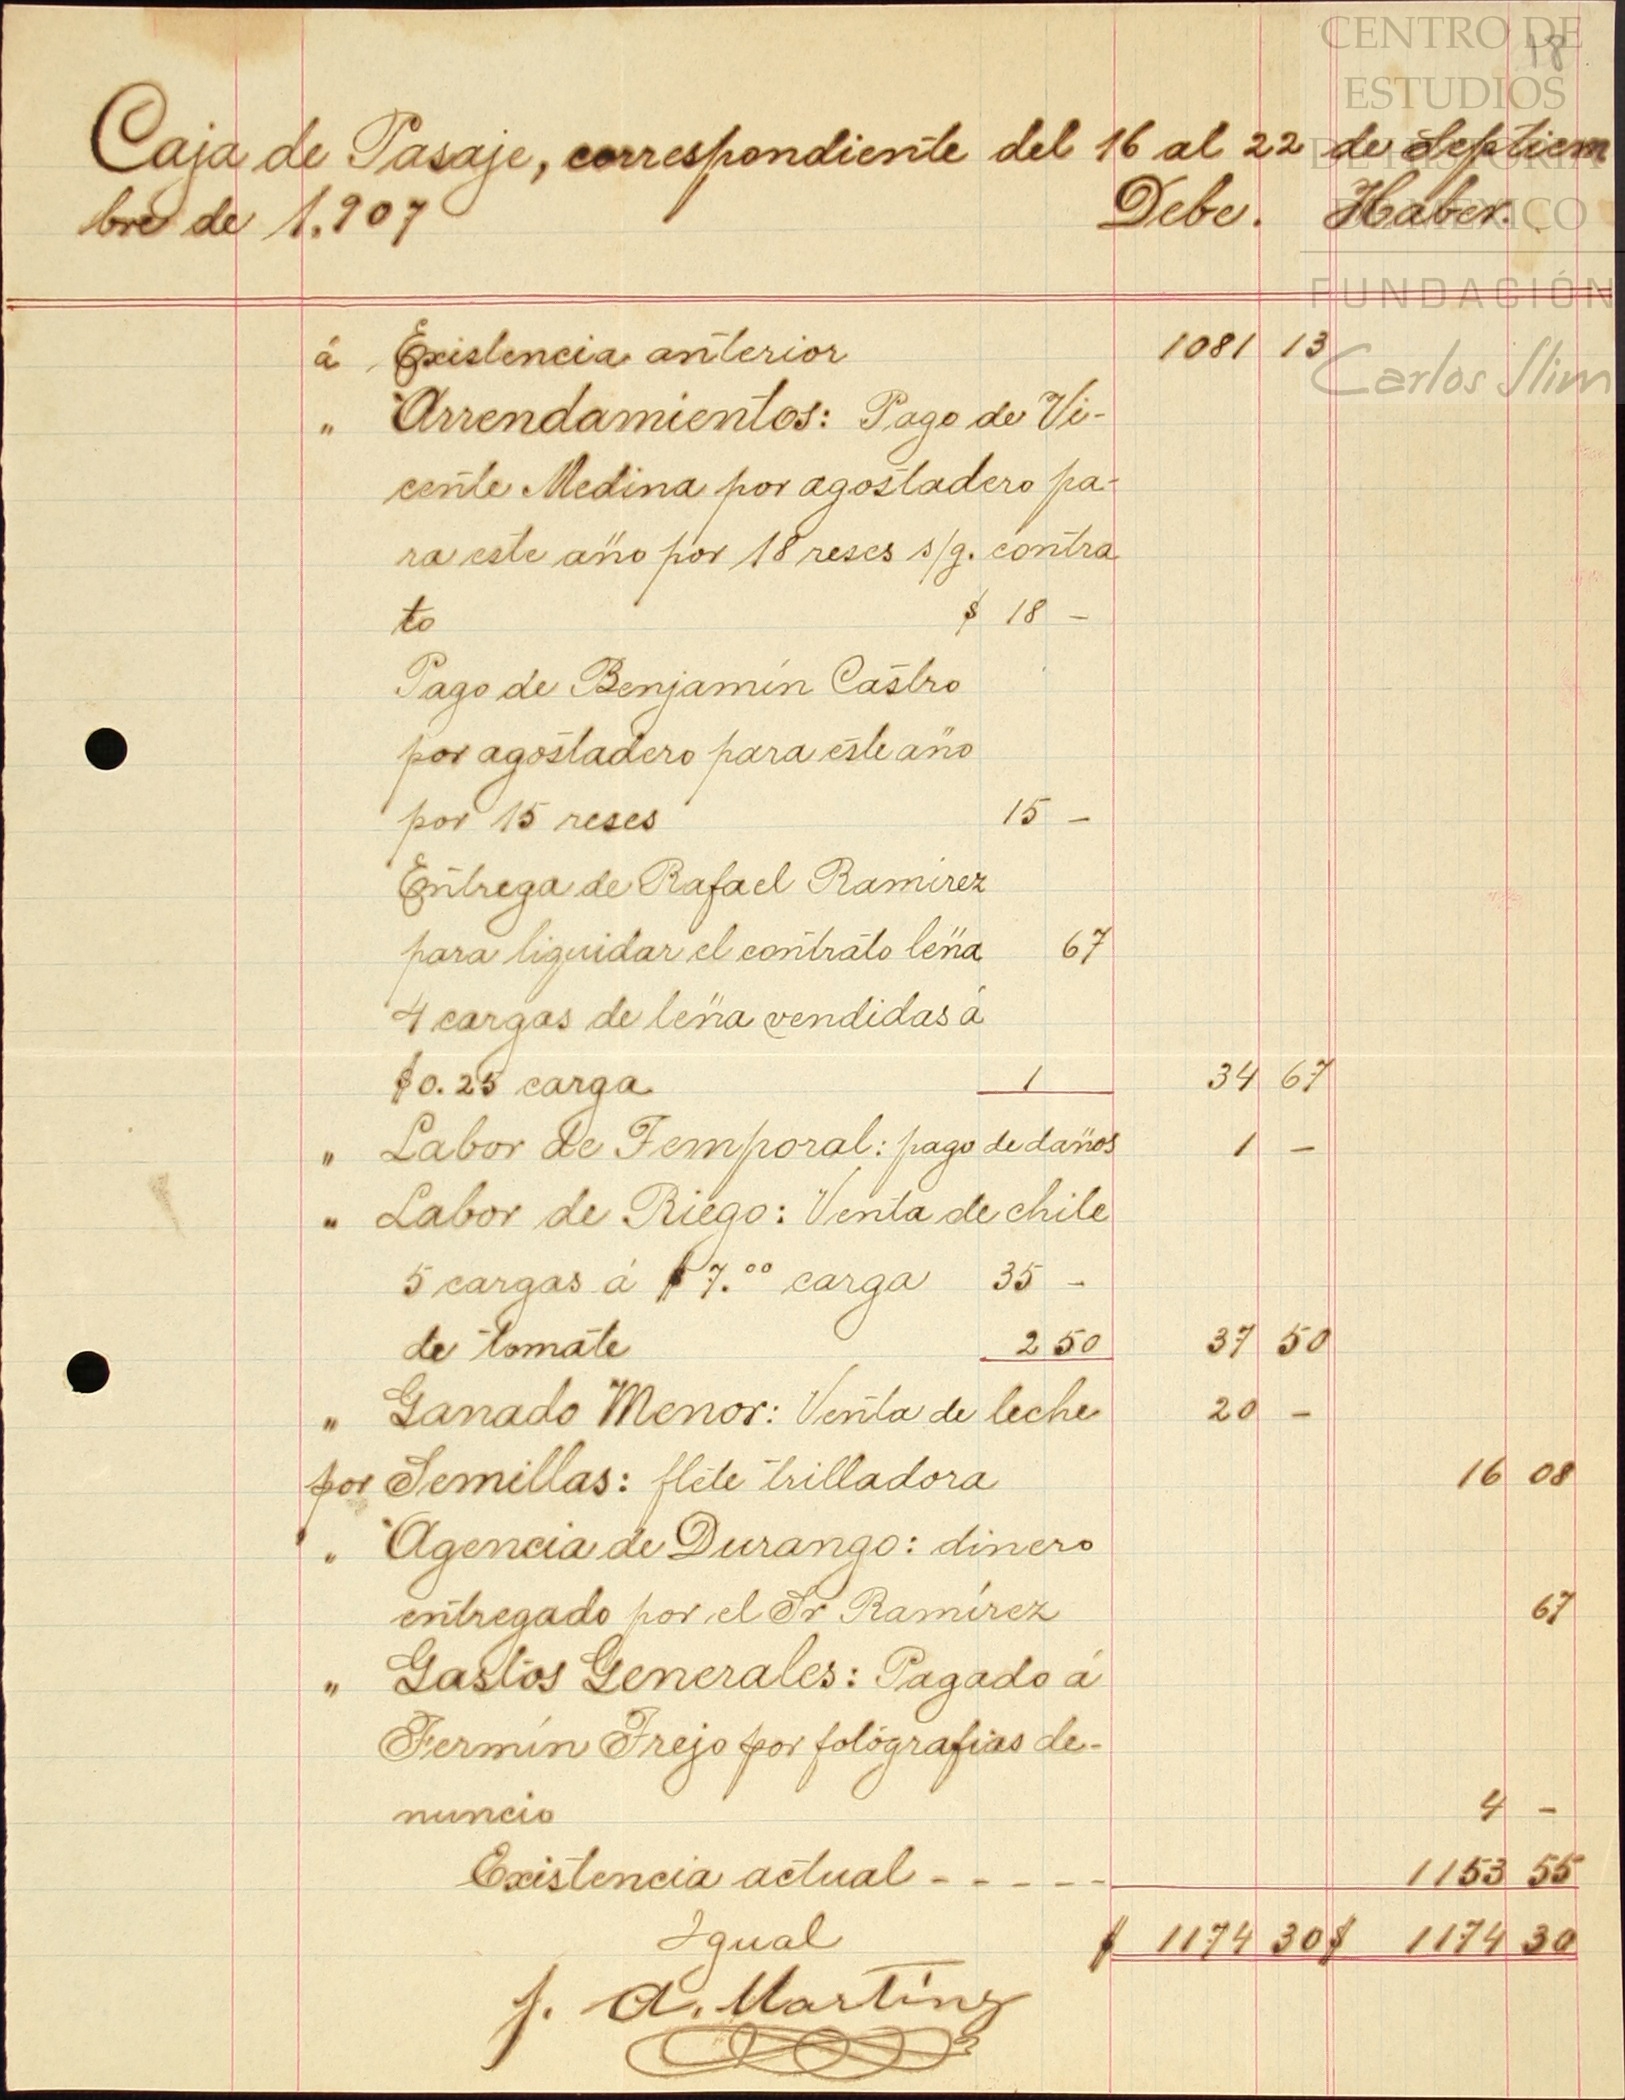 CENTRO DE
18
ESTUDIOS
DE HISTORIA
DE MÉXICO
FUNDACIÓN
Carlos Slim
Caja de Pasaje, correspondiente del 16 al 22 de Septiem
bre de 1.907 Debe. Haber.
á Existencia anterior 1081 13
" Arrendamientos: Pago de Vi-
cente Medina por agostadero pa-
ra este año por 18 reses s/g. contra
to $ 18 -
Pago de Benjamín Castro
por agostadero para este año
por 15 reses 15 -
Entrega de Rafael Ramírez
para liquidar el contrato leña 67
4 cargas de leña vendidas á
$0.25 carga 1 34 67
" Labor de Temporal: pago de daños 1 -
" Labor de Riego: Venta de chile
5 cargas á $7.00 carga 35 -
de tomate 2 50 37 50
" Ganado Menor: Venta de leche 20 -
por Semillas: flete trilladora 16 08
" Agencia de Durango: dinero
entregado por el Sr Ramírez 67
" Gastos Generales: Pagado á
Fermín Trejo por fotógrafias de-
nuncio 4 -
Existencia actual - - - - - 1153 55
Igual $ 1174 30 $ 1174 30
J. A. Martínz